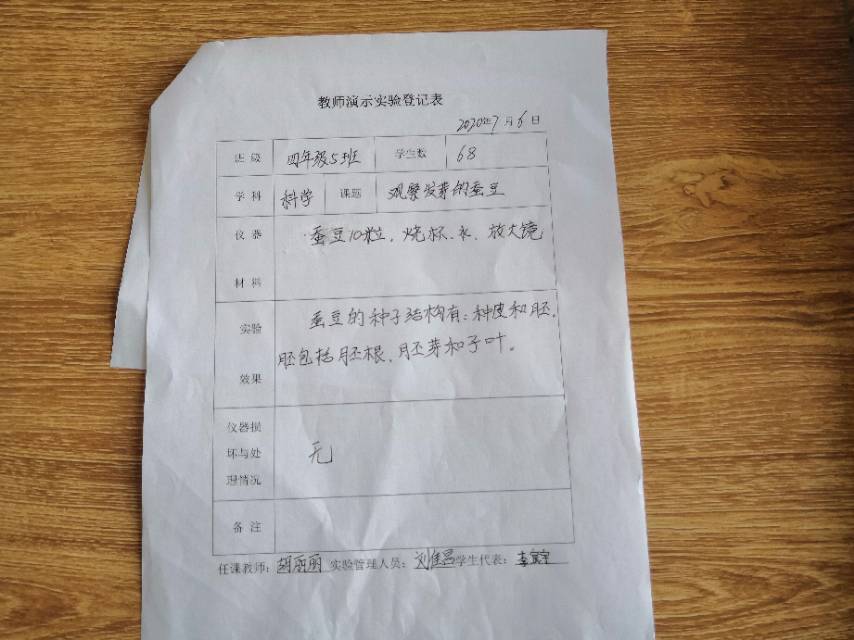 教师演示实验登记表
2020年7月6日
班级 四年级5班 学生数 68
学科 科学 课题 观察发芽的蚕豆
仪器 蚕豆10粒，烧杯、水、放大镜
材料
蚕豆的种子结构有：种皮和胚，
实验
胚包括胚根、胚芽和子叶。
效果
仪器损
坏与处 无
理情况
备注
任课教师：胡丽丽 实验管理人员：刘佳吕 学生代表：李